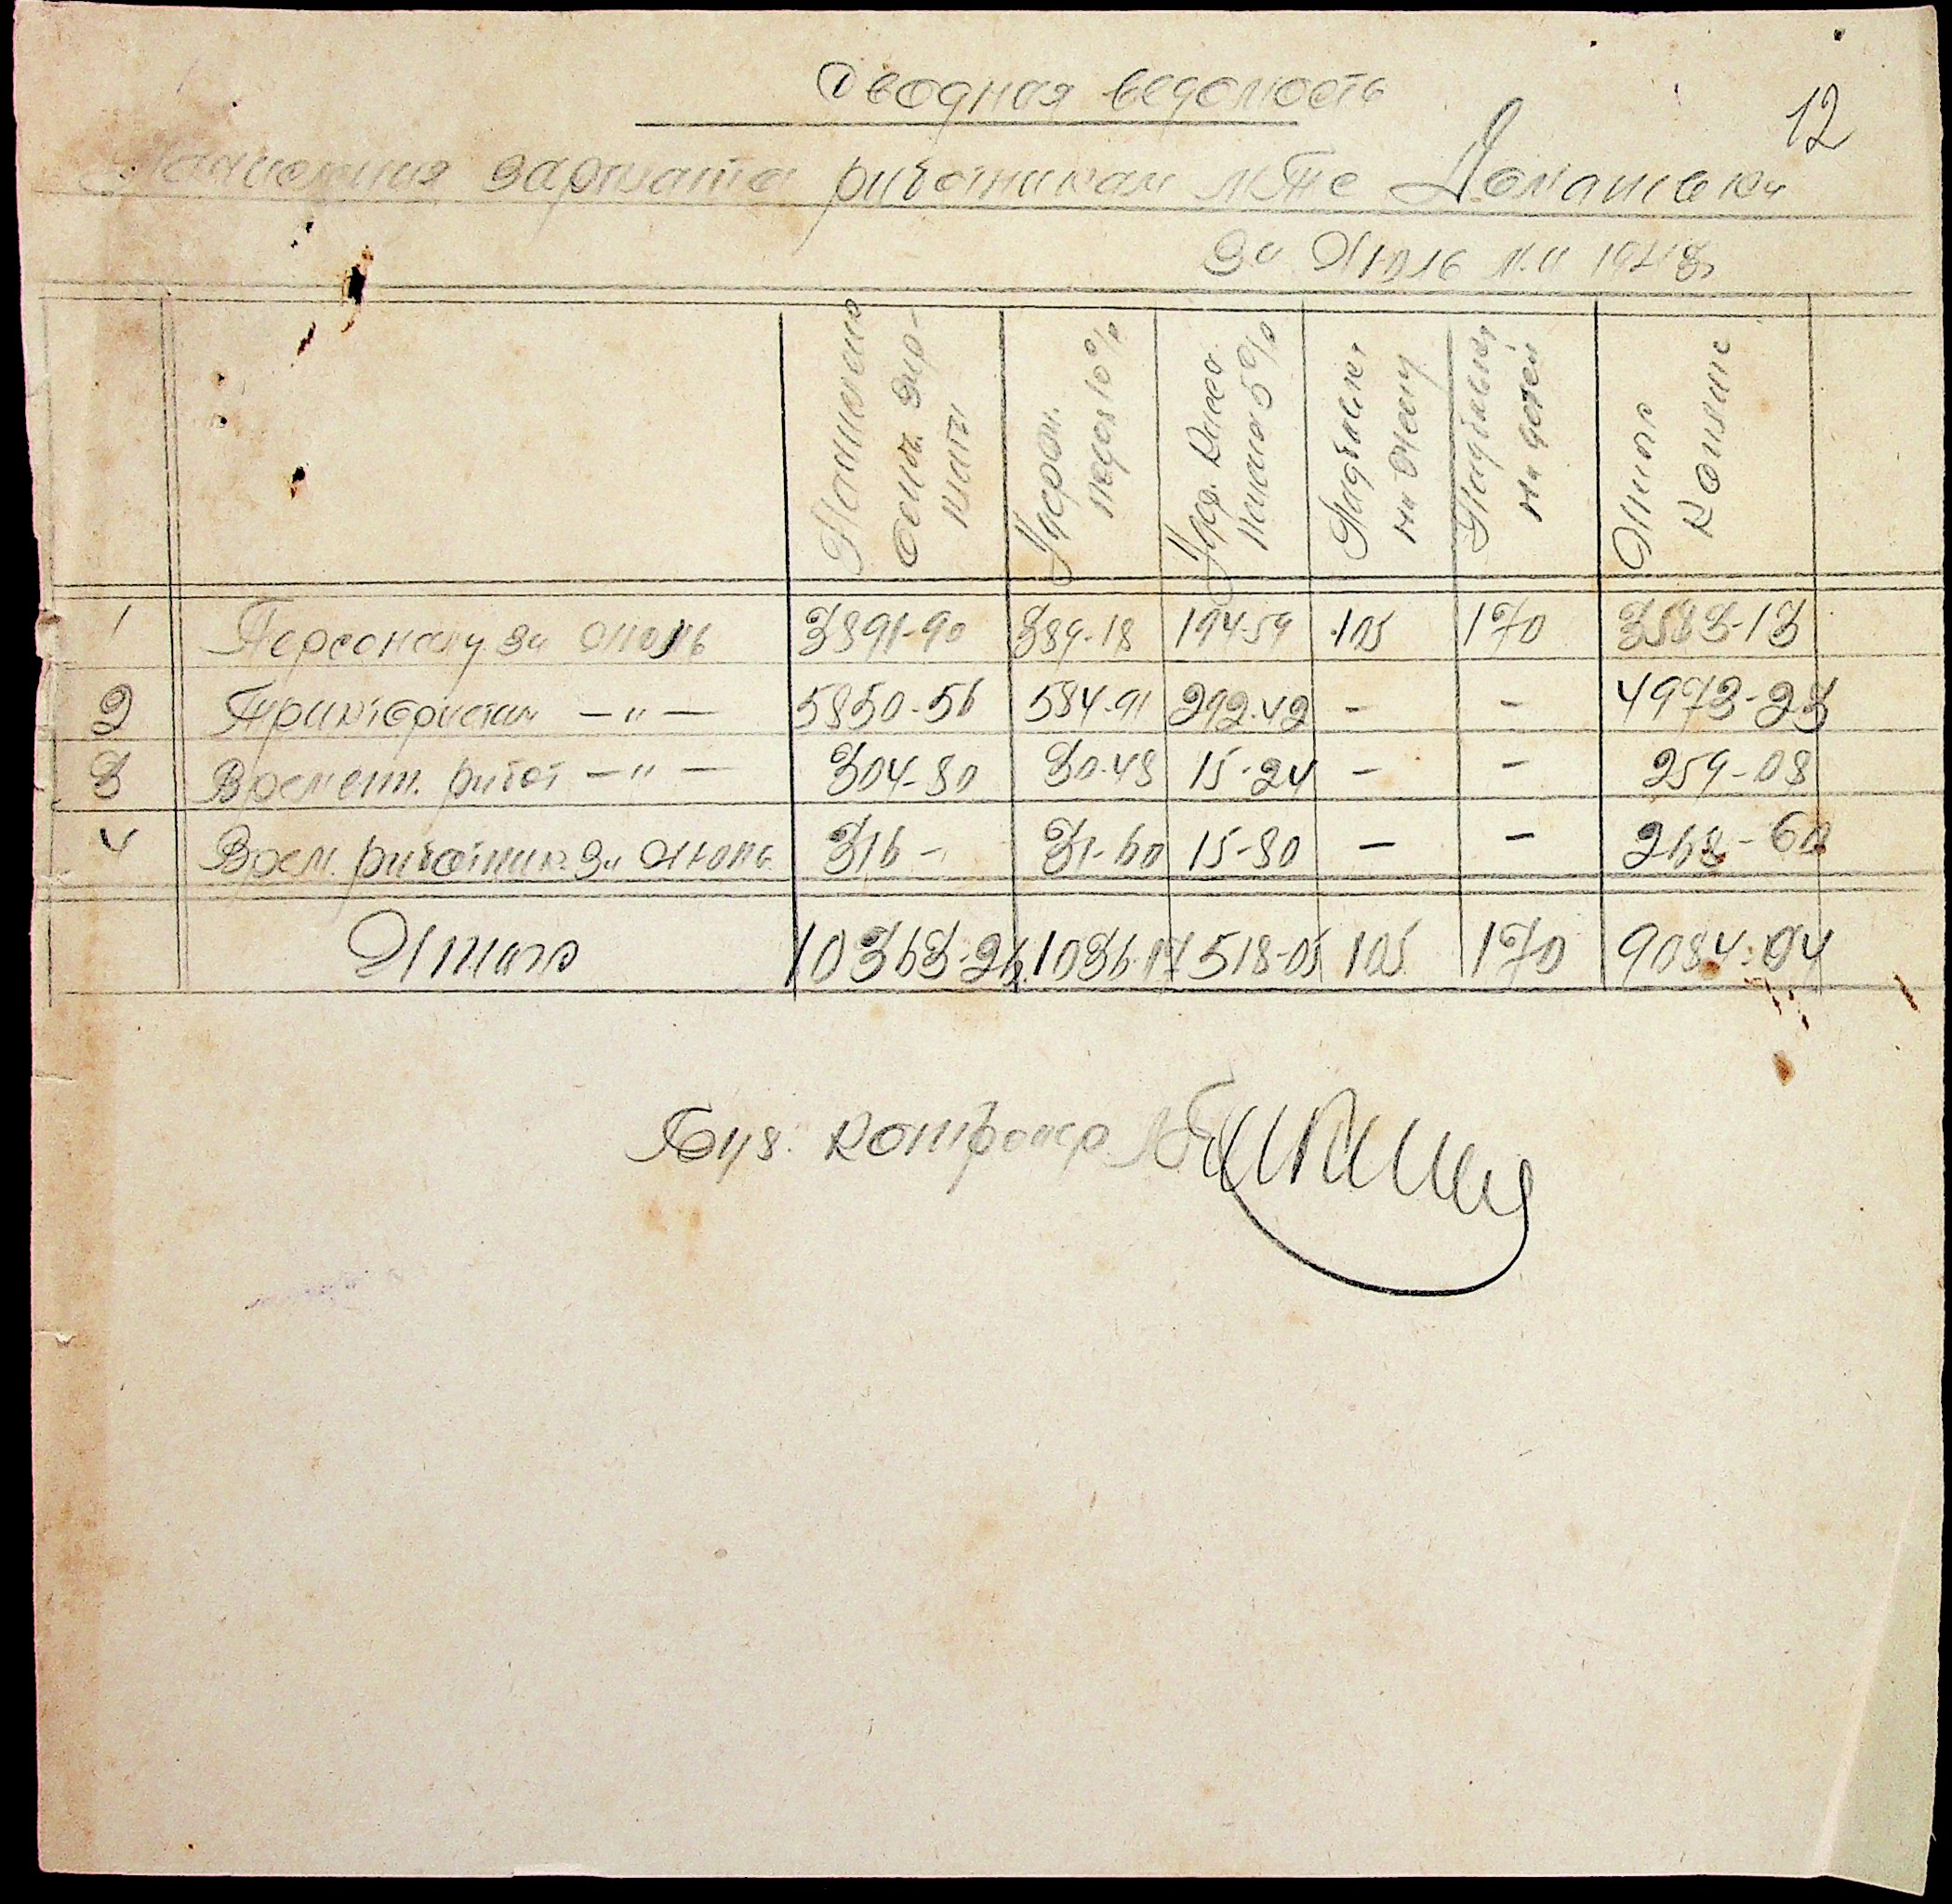 12
Сводная ведомость
Начисления зарплата работникам МТС Домашовки
за Июль м-ц 1943
Начислено основ. зар-платы
Удерж. подох 10%
Удер.
5%
Надбавка на жену
Надбавка на детей
Итого
1 Персоналу за Июль 3891-90 389-18 194-59 105 170 3583-13
2 Трактористам —"— 5850-56 584-91 292-42 - - 4973-23
3 Времен. работ —"— 304-80 30-48 15-24 - - 259-08
4 Врем. работник. за Июль 316 - 31-60 15-80 - - 268-60
Итого 10363-26 1036-17 518-05 105 170 9084-04
Бух.